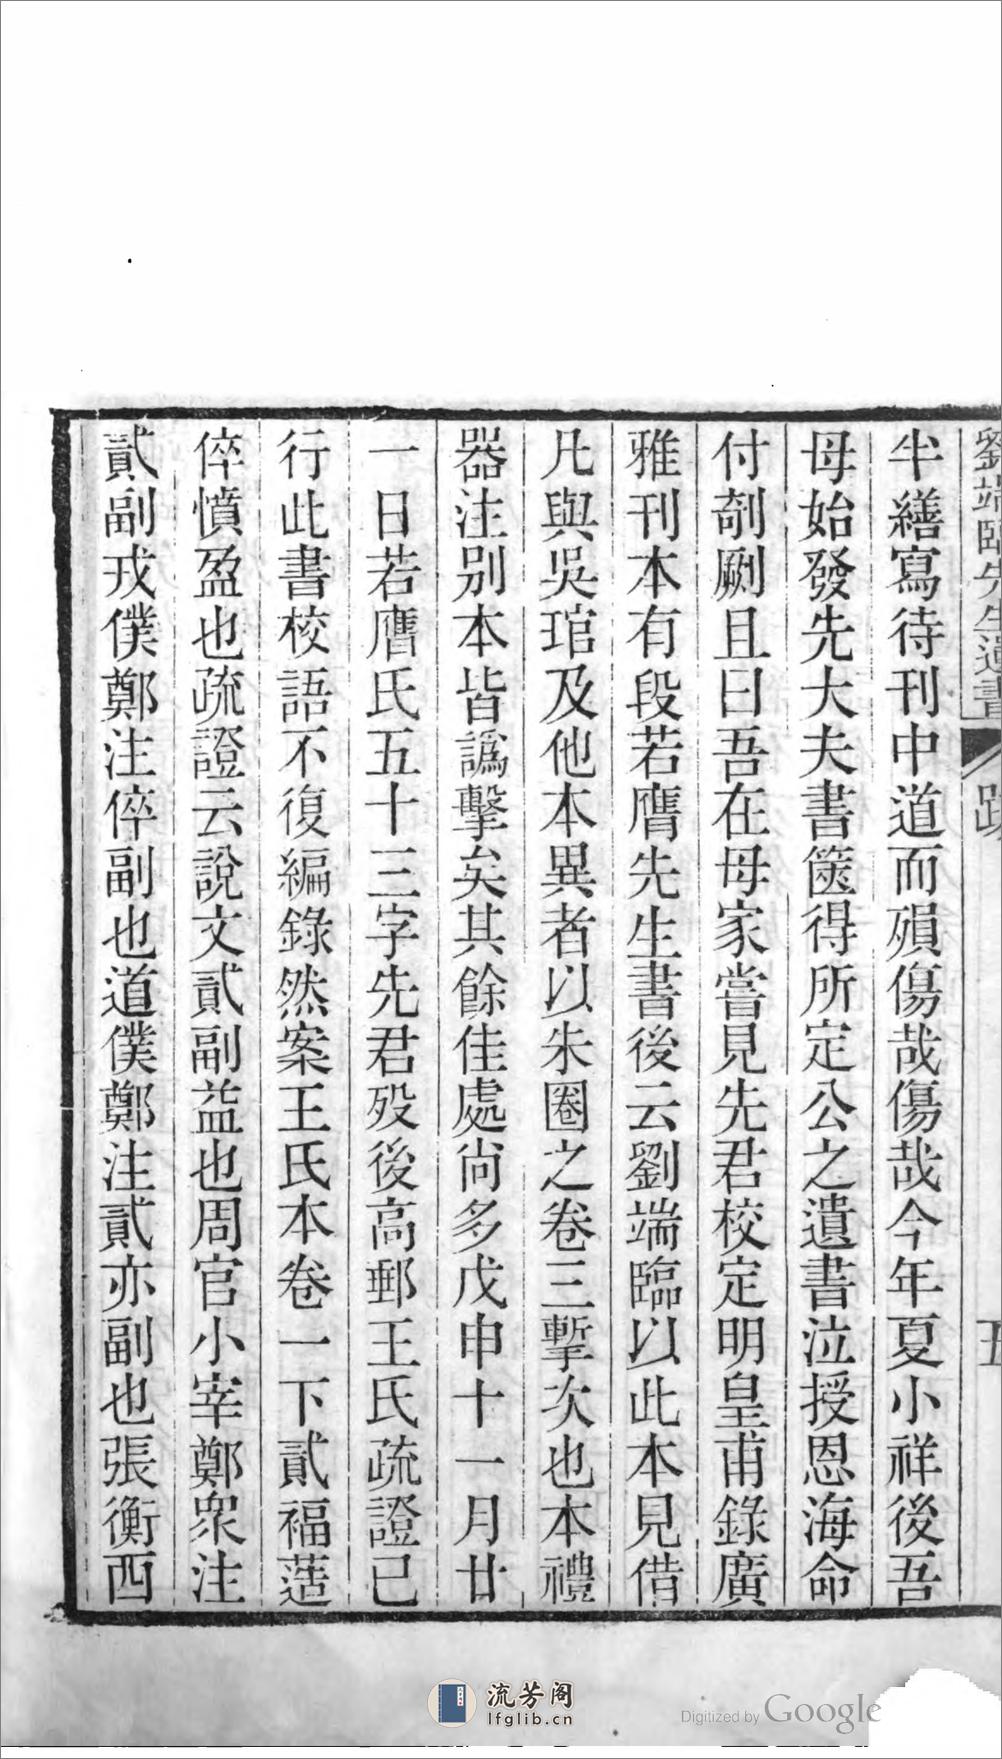 劉端臨先生遺書 跋 五
半繕寫待刊中道而殞傷哉傷哉今年夏小祥後吾
母始發先大夫書篋得所定公之遺書泣授恩海命
付剞劂且曰吾在母家嘗見先君校定明皇甫錄廣
雅刊本有段若膺先生書後云劉端臨以此本見借
凡與吳琯及他本異者以朱圈之卷三塹次也本禮
器注別本皆譌擊矣其餘佳處尚多戊申十一月廿
一日若膺氏五十三字先君歿後高郵王氏疏證已
行此書校語不復編錄然案王氏本卷一下貳福䔏
倅憤盈也疏證云說文貳副益也周官小宰鄭眾注
貳副戎僕鄭注倅副也道僕鄭注貳亦副也張衡西
流芳阁
lfglib.cn
Digitized by Google